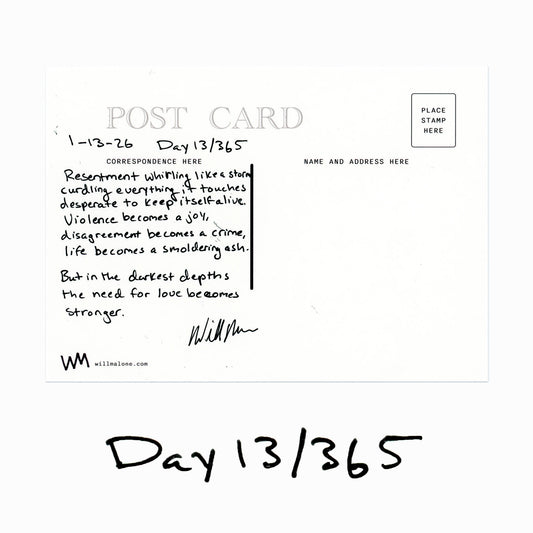 POST CARD
PLACE
STAMP
HERE
1-13-26 Day 13/365
CORRESPONDENCE HERE
NAME AND ADDRESS HERE
Resentment whirling like a storm
curdling everything it touches
desperate to keep itself alive.
Violence becomes a joy,
disagreement becomes a crime,
life becomes a smoldering ash.
But in the darkest depths
the need for love becomes
stronger.
WM willmalone.com
Day 13/365